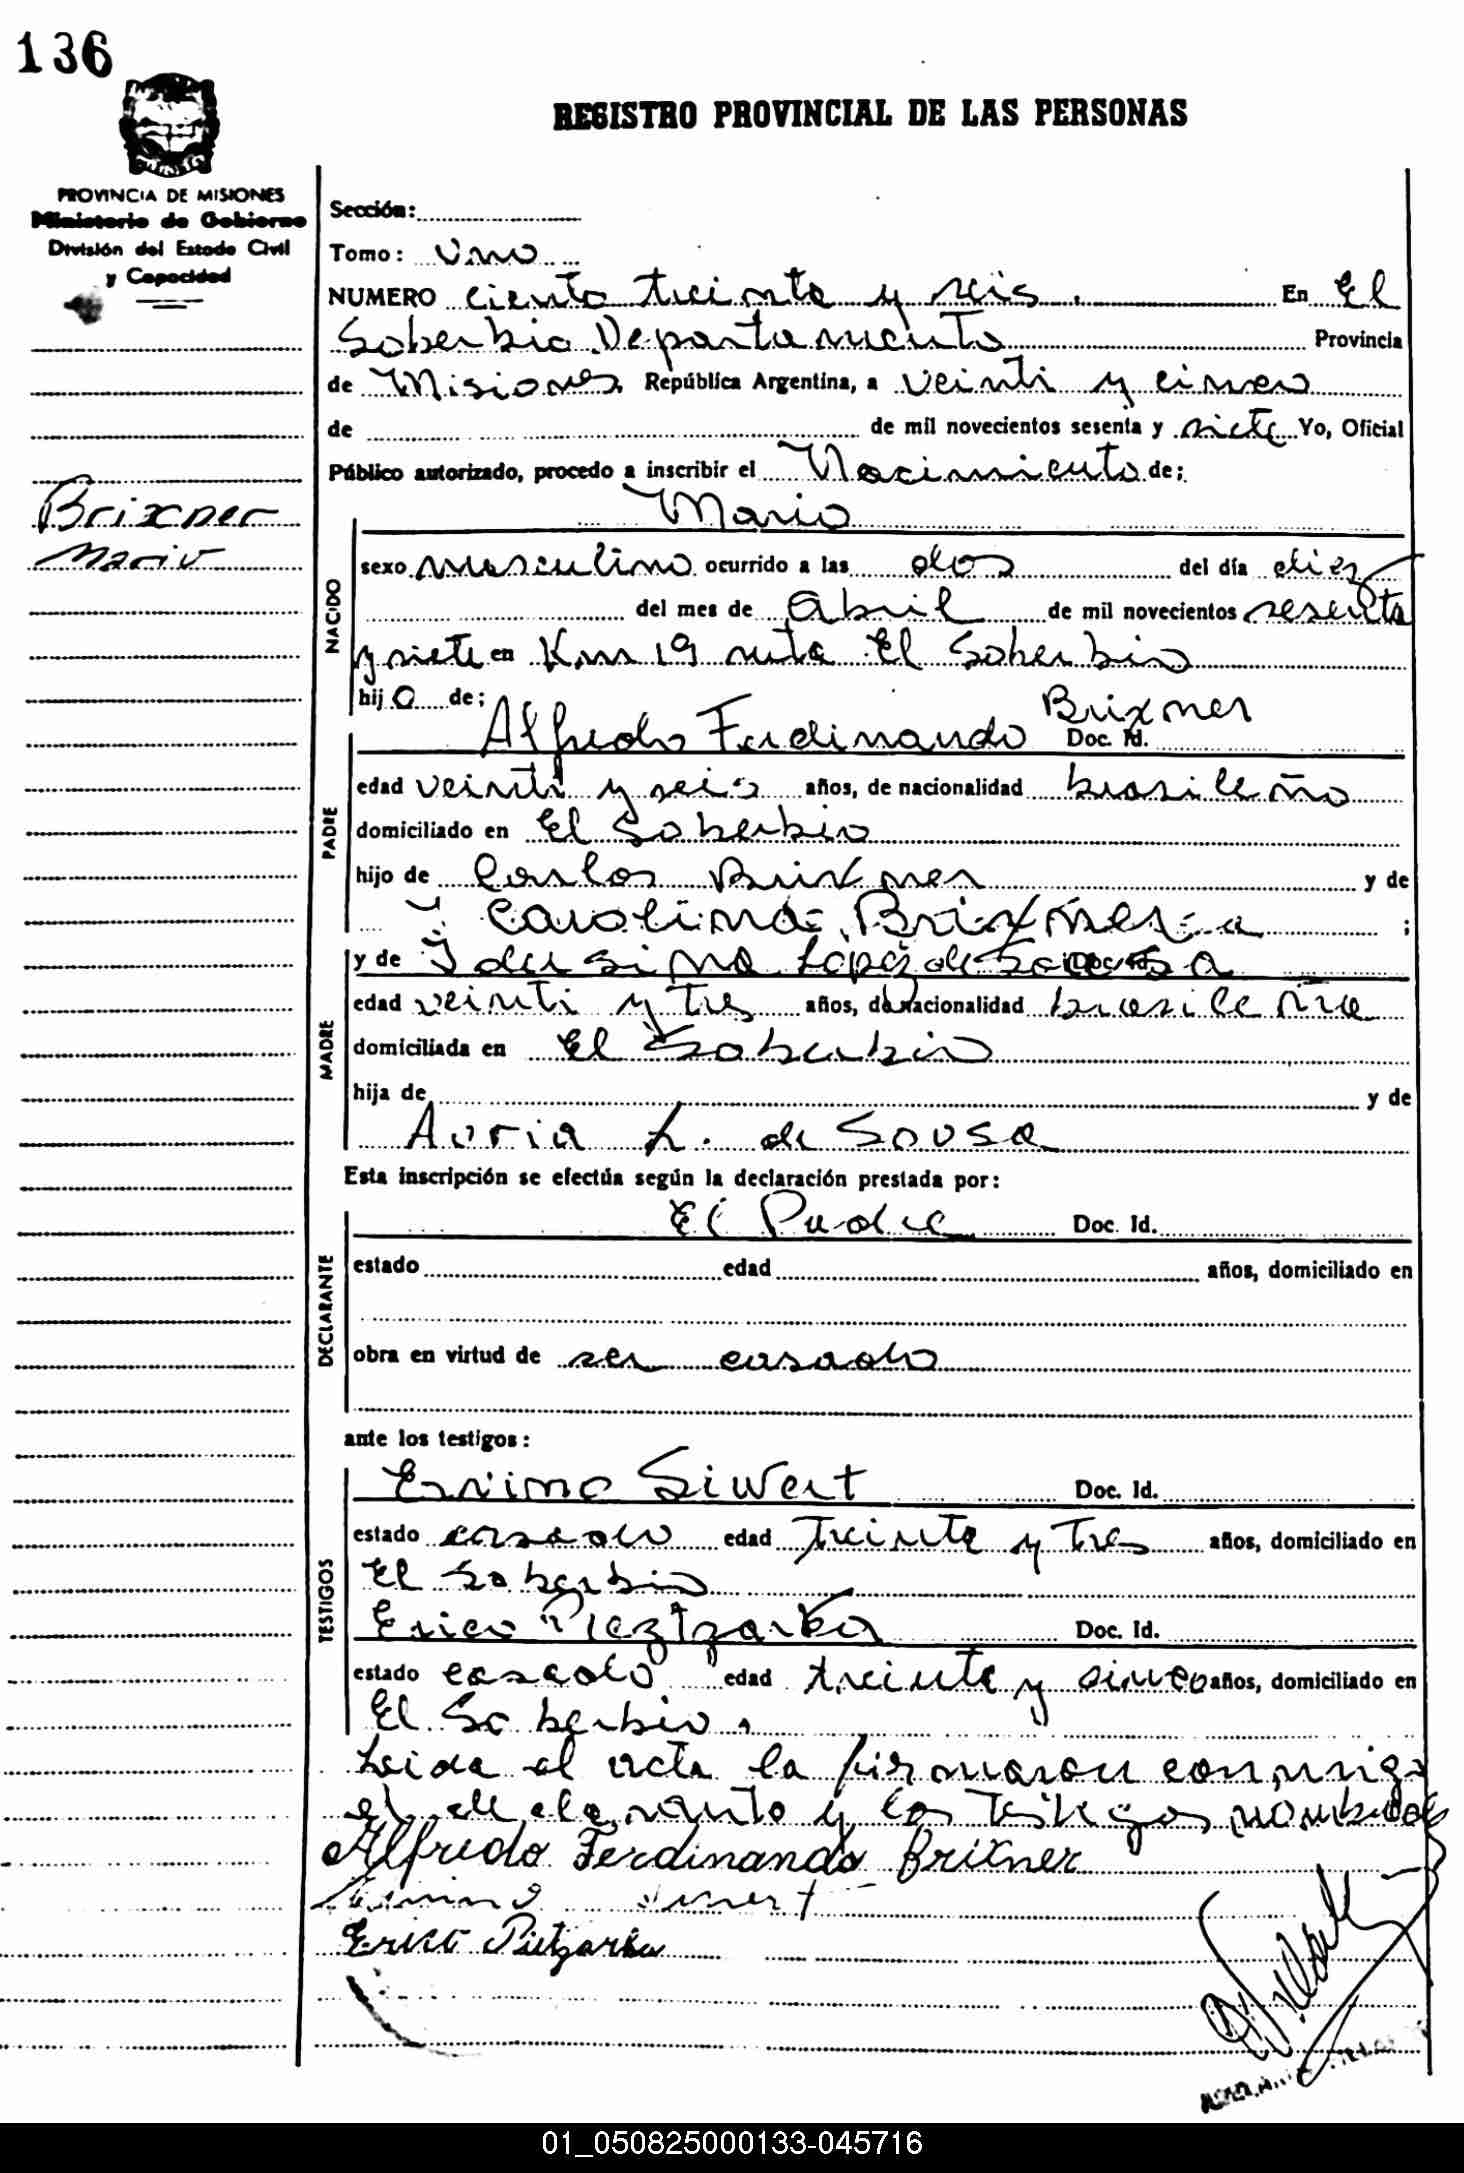 136
REGISTRO PROVINCIAL DE LAS PERSONAS
PROVINCIA DE MISIONES
Ministerio de Gobierno
División del Estado Civil
y Capacidad
Brixner
Mario
Sección:
Tomo: Uno
NUMERO ciento treinta y seis. En El
Soberbio Departamento Provincia
de Misiones República Argentina, a veinti y cinco
de de mil novecientos sesenta y siete Yo, Oficial
Público autorizado, procedo a inscribir el Nacimiento de;
Mario
NACIDO
sexo masculino ocurrido a las dos del día diez
del mes de Abril de mil novecientos sesenta
y siete en Km 19 ruta El Soberbio
hijo de;
Alfredo Ferdinando Brixner Doc. Id.
PADRE
edad veinti y seis años, de nacionalidad brasileño
domiciliado en El Soberbio
hijo de Carlos Brixner y de
Carolina Brixner ;
y de López de Doc. Id.
MADRE
edad veinti y tres años, de nacionalidad brasileña
domiciliada en El Soberbio
hija de y de
Auria L. de Sousa
Esta inscripción se efectúa según la declaración prestada por:
El Padre Doc. Id.
DECLARANTE
estado edad años, domiciliado en
obra en virtud de ser casado
ante los testigos:
Siwert Doc. Id.
TESTIGOS
estado casado edad treinta y tres años, domiciliado en
El Soberbio
Erico Doc. Id.
estado casado edad treinta y sinco años, domiciliado en
El Soberbio.
Leida el acta la firmaron conmigo
el y los testigos nombrados
Alfredo Ferdinando Brixner
Erico Pietzarka
01_050825000133-045716